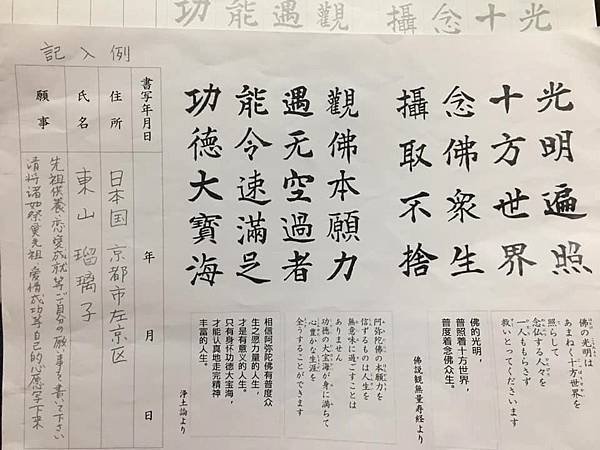 光
十
念
攝
觀
遇
能
功
光明遍照
十方世界
念佛衆生
攝取不捨
觀佛本願力
遇无空過者
能令速滿足
功德大寶海
佛の光明は
あまねく十方世界を
照らして
念仏する人々を
一人ももらさず
救いとってくださいます
佛的光明，
普照着十方世界，
普度着念佛众生。
佛説観無量寿経より
阿弥陀佛の本願力を
信ずるものは人生を
無意味に過ごすことは
ありません
功徳の大宝海が身に満ちて
心豊かな生涯を
全うすることができます
相信阿弥陀佛有普度众
生之愿力量的人生，
才是有意义的人生。
只有身怀功德大宝海，
才能认真地走完精神
丰富的人生。
浄土論より
記入例
書写年月日 年 月 日
住所 日本国 京都市左京区
氏名 東山 瑠璃子
願事 先祖供養・恋愛成就等ご自分の願い事を書いて下さい
请将诸如祭奠先祖・爱情成功等自己的心愿写下来